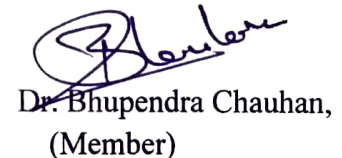 Dr. Bhupendra Chauhan,
(Member)